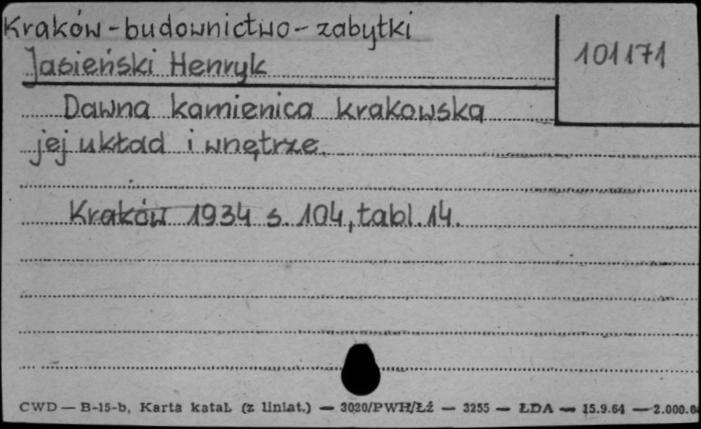 Kraków - budownictwo - zabytki
101171
Jasieński Henryk
Dawna kamienica krakowska
jej układ i wnętrze.
Kraków 1934 s. 104, tabl. 14.
CWD — B-15-b, Karta katal. (z liniat.) — 3020/PWH/Łź — 3255 — ŁDA — 15.9.64 — 2.000.0